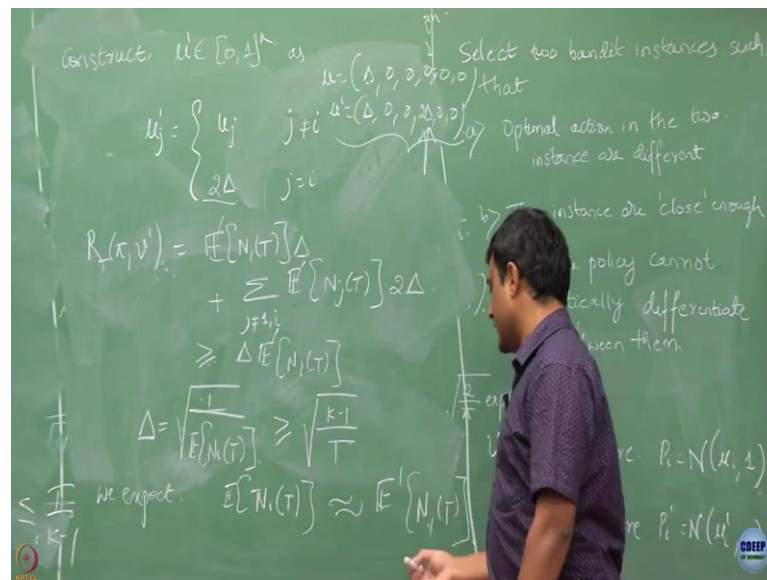 Construct μ' ∈ [0,1]^k as
μ = (Δ, 0, 0, 0, 0, 0)
μ'_j = { μ_j j ≠ i
2Δ j = i
μ' = (Δ, 0, 0, 2Δ, 0, 0)
R_T(π, ν') = E'[N_1(T)] Δ
+ Σ_{j≠1,i} E'[N_j(T)] 2Δ
≥ Δ E'[N_1(T)]
Δ = √(1 / E[N_i(T)]) ≥ √((K-1) / T)
≤ T / (K-1)
we expect. E[N_i(T)] ≈ E'[N_j(T)]
Select two bandit instances such
that
a> Optimal action in the two
instance are different
b> instance are 'close' enough
policy cannot
differentiate
them.
√(2/π) exp
P_i = N(μ_i, 1)
P_i' = N(μ_i'
NPTEL
CDEEP
IIT BOMBAY